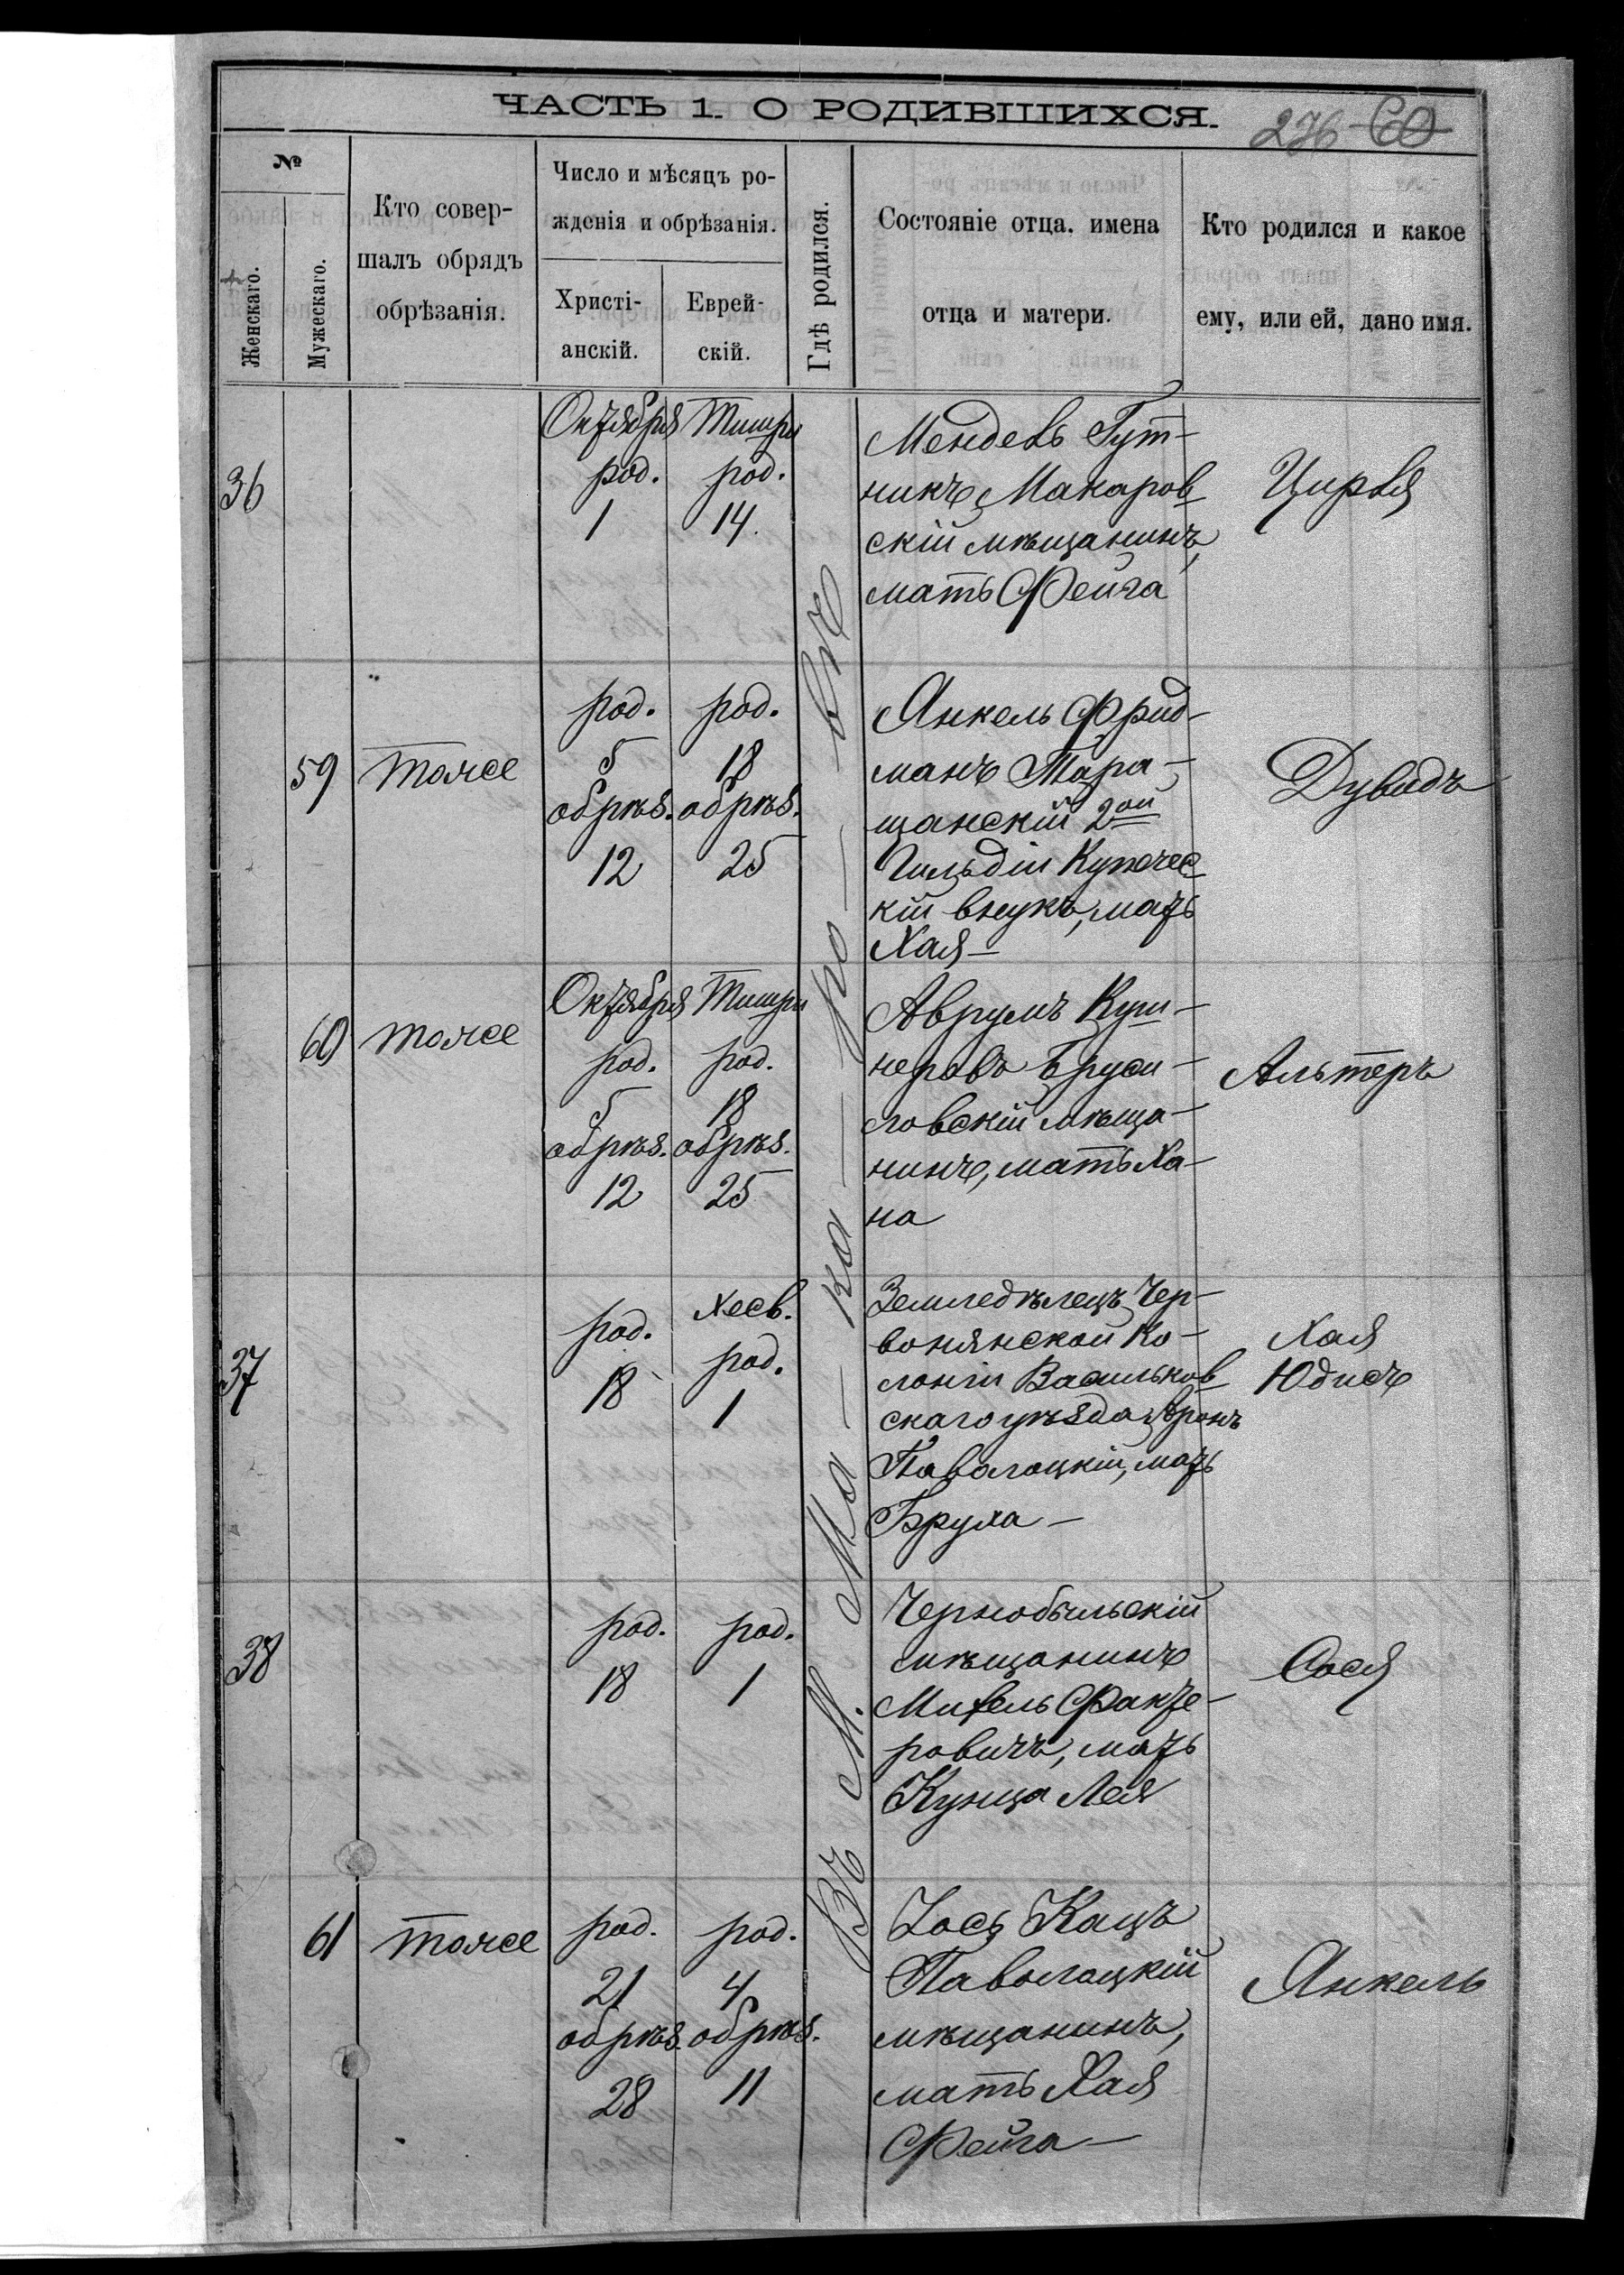 ЧАСТЬ 1. О РОДИВШИХСЯ.
276 60
№
Женскаго.
Мужескаго.
Кто совер-
шалъ обрядъ
обрѣзанія.
Число и мѣсяцъ ро-
жденія и обрѣзанія.
Христі-
анскій.
Еврей-
скій.
Гдѣ родился.
Состояніе отца. имена
отца и матери.
Кто родился и какое
ему, или ей, дано имя.
Въ М. Ма — ка — ро — вѣ
36
Октября
род.
1
Тишри
род.
14.
Мендель Гут-
никъ Макаров
скій мѣщанинъ,
мать Фейга
Цирля
59
тоже
род.
5
обрѣз.
12
род.
18
обрѣз.
25
Янкель Фрид-
манъ Тара-
щанскій 2ой
Гильдіи Купечес
кій внукъ, мать
Хая —
Дувидъ
60
тоже
Октября
род.
5
обрѣз.
12
Тишри
род.
18
обрѣз.
25
Аврумъ Куш-
неровъ Бруси-
ловскій мѣща-
нинъ, мать Ха-
на
Альтеръ
37
род.
18
Хесв.
род.
1
Земледѣлецъ Чер-
вонянской Ко-
лоніи Васильков
скаго уѣзда Аронъ
Паволоцкій, мать
Бруха —
Хая
Юдисъ
38
род.
18
род.
1
Чернобыльскій
мѣщанинъ
Михель Факто-
ровичъ, мать
Кунца Лея
Сося
61
тоже
род.
21
обрѣз.
28
род.
4
обрѣз.
11
Іось Кацъ
Паволоцкій
мѣщанинъ,
мать Хая
Фейга —
Янкель